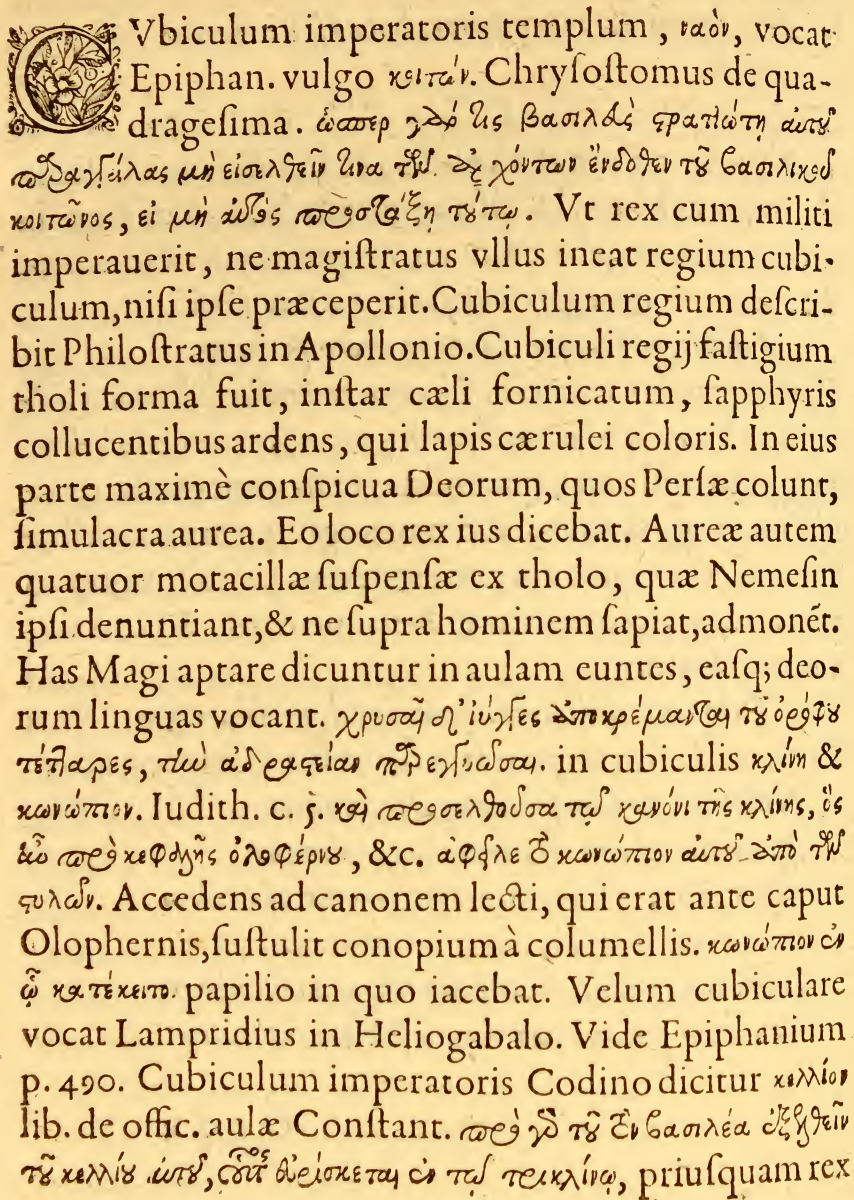 CVbiculum imperatoris templum, ναὸν, vocat
Epiphan. vulgo κοιτών. Chryſoſtomus de qua-
drageſima. ὥσπερ γὰρ τις βασιλεὺς στρατιώτῃ αὐτοῦ
παραγγείλας μὴ εἰσελθεῖν τινα τῶν ἀρχόντων ἔνδοθεν τοῦ βασιλικοῦ
κοιτῶνος, εἰ μὴ αὐτὸς προστάξῃ τούτῳ. Vt rex cum militi
imperauerit, ne magiſtratus vllus ineat regium cubi-
culum, niſi ipſe præceperit. Cubiculum regium deſcri-
bit Philoſtratus in Apollonio. Cubiculi regij faſtigium
tholi forma fuit, inſtar cæli fornicatum, ſapphyris
collucentibus ardens, qui lapis cærulei coloris. In eius
parte maximè conſpicua Deorum, quos Perſæ colunt,
ſimulacra aurea. Eo loco rex ius dicebat. Aureæ autem
quatuor motacillæ ſuſpenſæ ex tholo, quæ Nemeſin
ipſi denuntiant, & ne ſupra hominem ſapiat, admonēt.
Has Magi aptare dicuntur in aulam euntes, eaſq; deo-
rum linguas vocant. χρυσαῖ δ' ἴυγγες ἀποκρέμανται τοῦ ὀρόφου
τέτταρες, τὴν ἀδράστειαν παρεγγυῶσαι. in cubiculis κλίνη &
κωνώπιον. Iudith. c. 5. καὶ προσελθοῦσα τῷ κανόνι τῆς κλίνης, ὃς
ἦν πρὸ κεφαλῆς ὀλοφέρνου, &c. ἀφεῖλε τὸ κωνώπιον αὐτοῦ ἀπὸ τῶν
στυλῶν. Accedens ad canonem lecti, qui erat ante caput
Olophernis, ſuſtulit conopium à columellis. κωνώπιον ἐν
ᾧ κατέκειτο. papilio in quo iacebat. Velum cubiculare
vocat Lampridius in Heliogabalo. Vide Epiphanium
p. 490. Cubiculum imperatoris Codino dicitur κελλίον
lib. de offic. aulæ Conſtant. πρὸ γὰρ τοῦ τὸν βασιλέα ἐξελθεῖν
τοῦ κελλίου αὐτοῦ, οὗτος εὑρίσκεται ἐν τῷ τρικλίνῳ, priuſquam rex